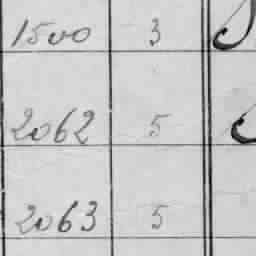 1500 3
2062 5
2063 5